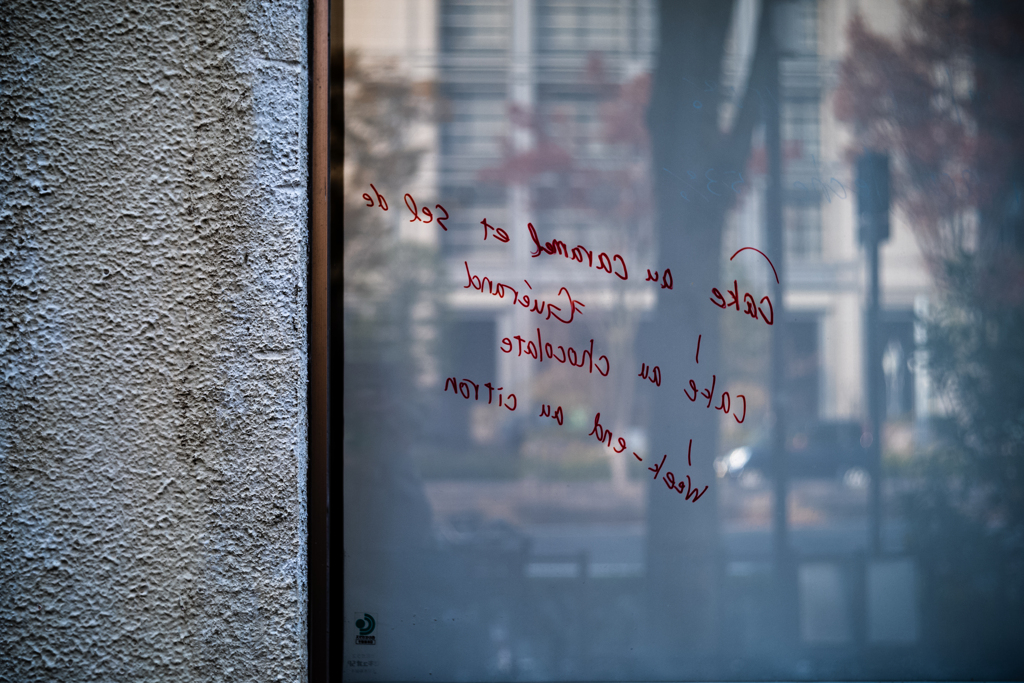 Cake au caramel et Sel de
Guérand
Cake au chocolate
Week-end au citron